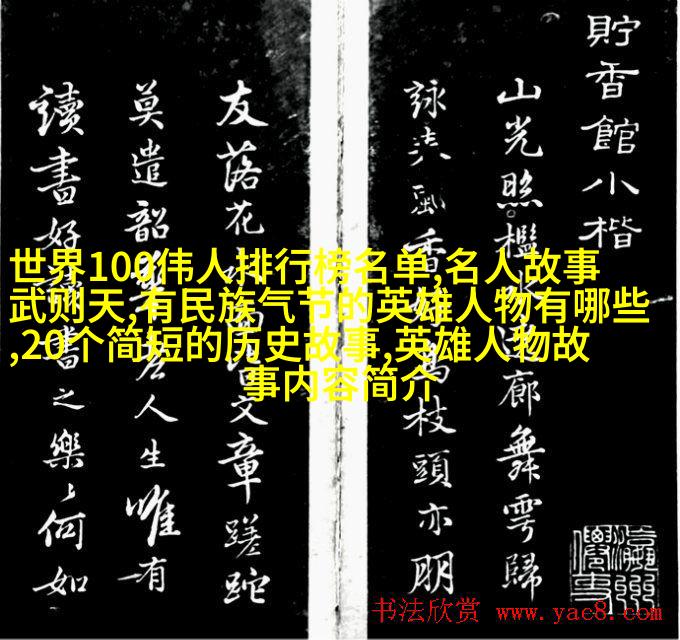 貯香館小楷
山光照檻水遶廊舞雩歸
詠春風香好鳥枝頭亦朋
友落花水面皆文章蹉跎
莫遣韶華老人生唯有
讀書好讀書之樂々何如
世界100伟人排行榜名单,名人故事
武则天,有民族气节的英雄人物有哪些
,20个简短的历史故事,英雄人物故
事内容简介
书法欣赏 www.yac8.com